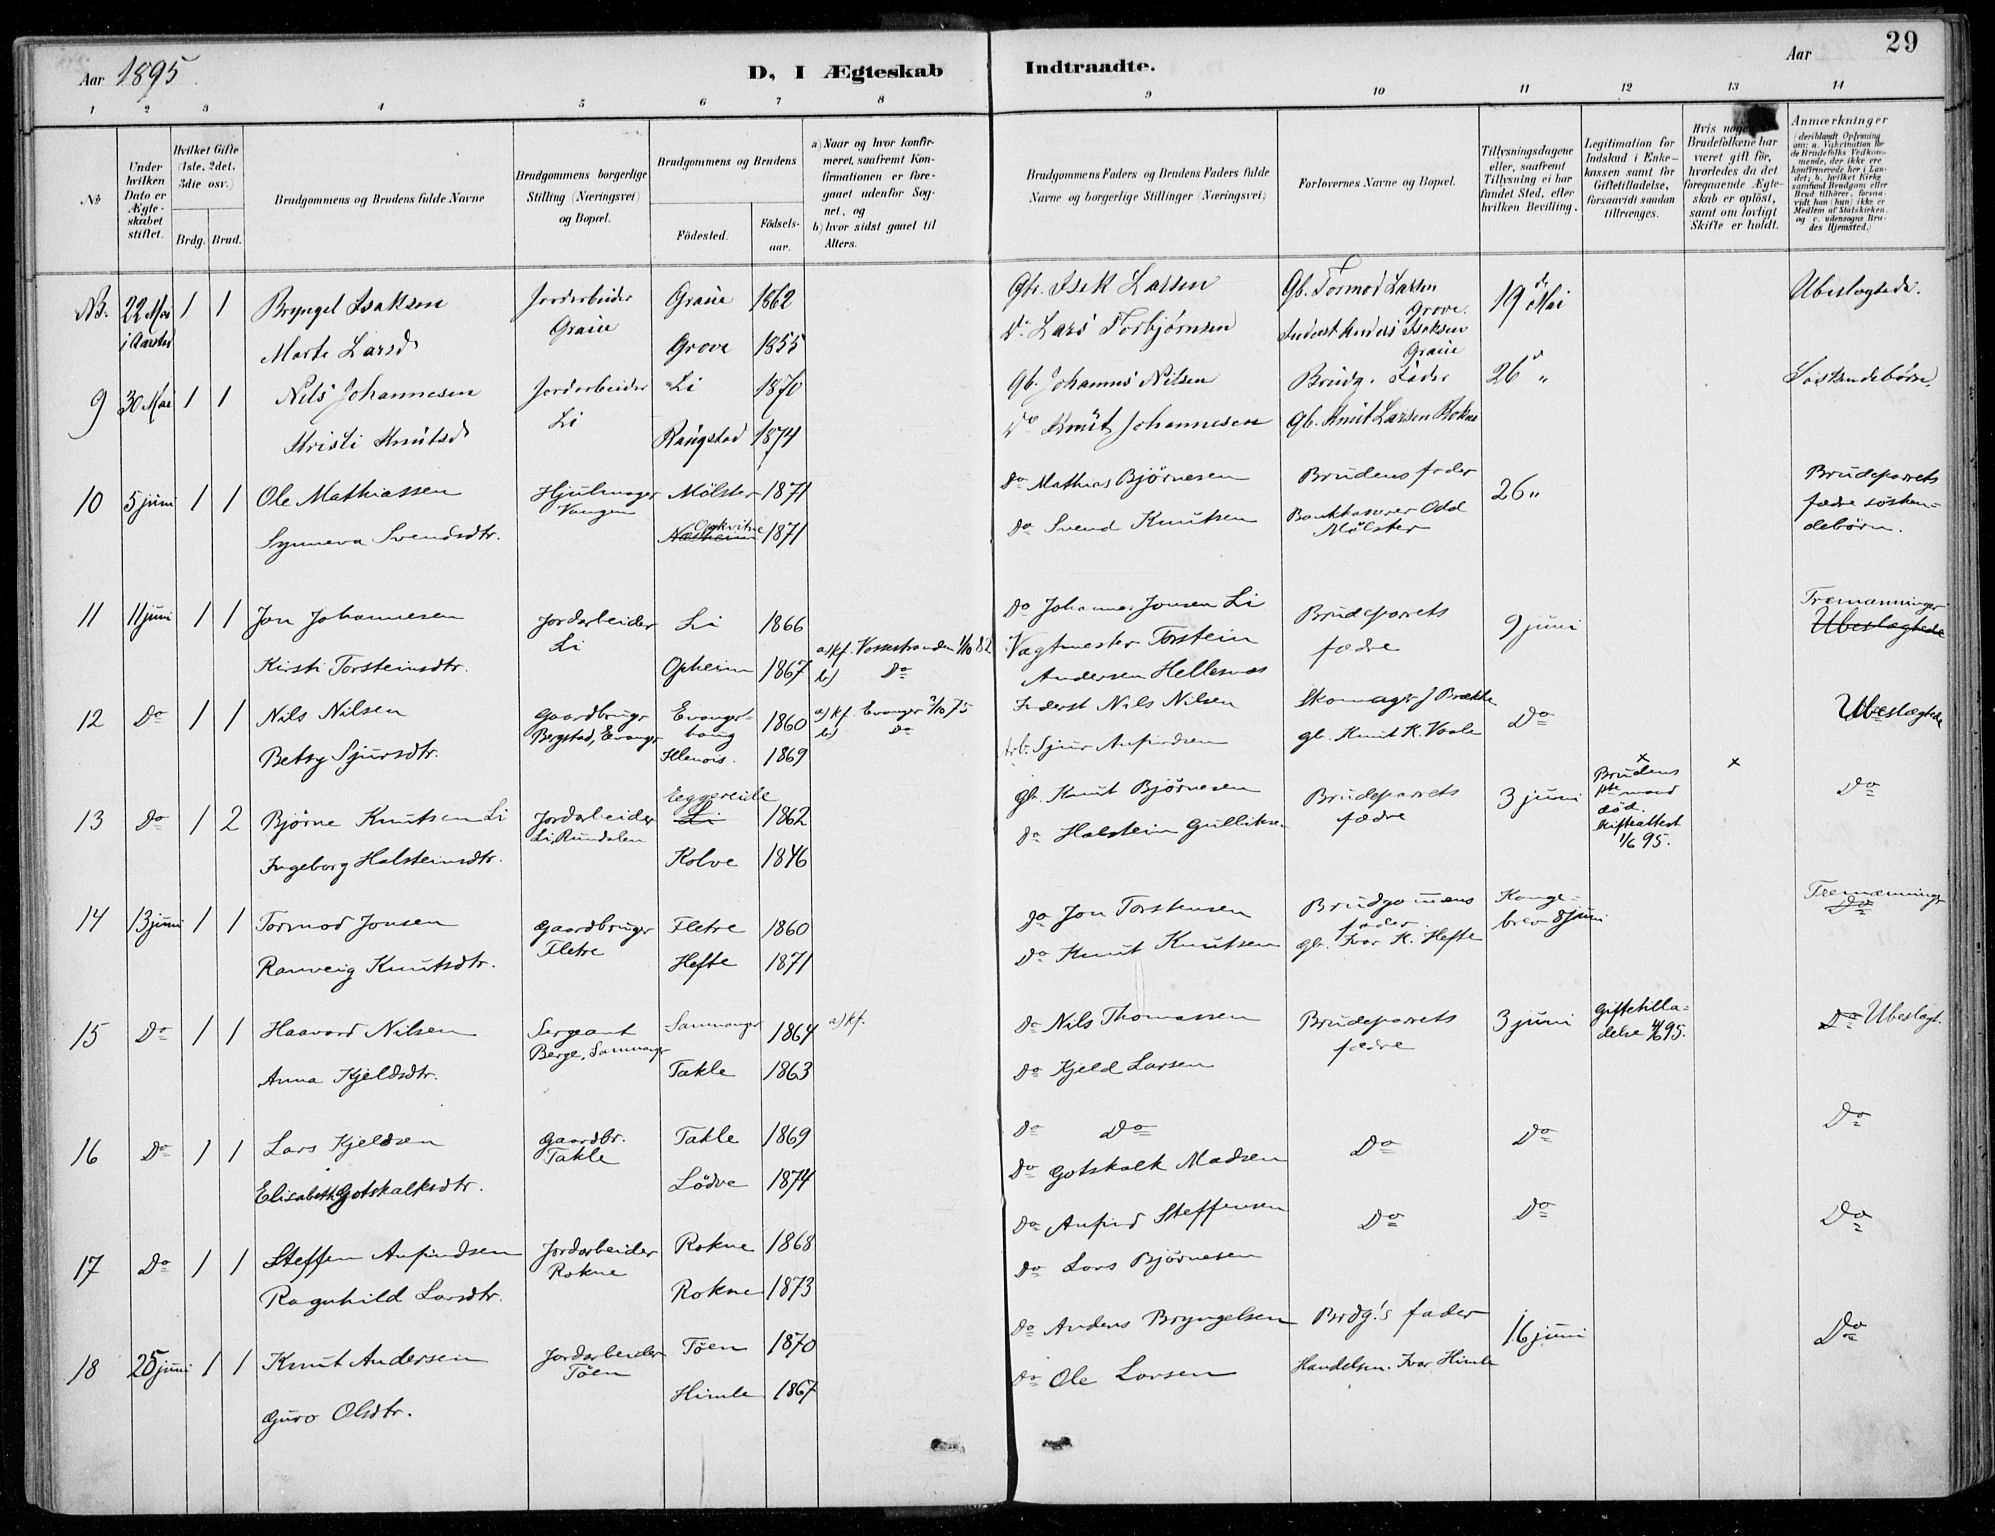 29
Aar 1895. D, I Ægteskab Indtraadte. Aar
1 2 3 4 5 6 7 8 9 10 11 12 13 14
No
Under hvilken Dato er Ægteskabet stiftet.
Hvilket Gifte (1ste, 2det, 3die osv.)
Brdg. Brud.
Brudgommens og Brudens fulde Navne
Brudgommens borgerlige Stilling (Næringsvei) og Bopæl.
Brudgommens og Brudens
Fødested. Fødsels-aar.
a) Naar og hvor konfirmeret, saafremt Konfirmationen er foregaaet udenfor Sognet, og
b) hvor sidst gaaet til Alters.
Brudgommens Faders og Brudens Faders fulde Navne og borgerlige Stillinger (Næringsvei)
Forlovernes Navne og Bopæl.
Tillysningsdagene eller, saafremt Tillysning ei har fundet Sted, efter hvilken Bevilling.
Legitimation for Indskud i Enkekassen samt for Giftetilladelse, forsaavidt saadan tiltrænges.
Hvis nogen af Brudefolkene har været gift før, hvorledes da det foregaaende Ægteskab er opløst, samt om lovligt Skifte er holdt.
Anmærkninger
(deriblandt Oplysning om: a. Vakcination for de Brudefolks Vedkommende, der ikke ere konfirmerede her i Landet; b. hvilket Kirkesamfund Brudgom eller Brud tilhører, forsaavidt han (hun) ikke er Medlem af Statskirken, og c. udensogns Brudes Hjemsted.)
NB. 22 Mai i Aarstad 1 1 Bryngel Isaksen Jordarbeider Graue Graue 1862 Gbr. Isek Larsen Gb. Tormod Larsen Grove. 19de Mai Ubeslægtede.
Marte Larsd Grove 1855 Do Lars Torbjørnsen Inderst Anders Isaksen Graue
9 30 Mai 1 1 Nils Johannesen Jordarbeider Li Li 1870 Gb. Johannes Nilsen Brudg. Fader 26 " Søskendebørn.
Kristi Knutsd Raugstad 1874 Do Knut Johannesen Gb. Knut Larsen Rokne
10 5 juni 1 1 Ole Mathiassen Hjulmager Vangen Mølster 1871 Do Mathias Bjørnesen Brudens fader 26 " Brudeparrets fædre søskendebørn.
Synneva Svendsdtr. 1871 Do Svend Knutsen Bankkasserer Odd Mølster
11 11 juni 1 1 Jon Johannesen Jordarbeider Li Li 1866 Do Johannes Jonsen Li Brudeparrets fædre 9 juni Tremænninger Ubeslægtede
Kirsti Torsteinsdtr. Opheim 1867 a) kf. Vossestranden 1/10 82 b) Do Vagtmester Torstein Andersen Hellesnæs
12 Do 1 1 Nils Nilsen Gaardbruger Bergstad, Evanger Evanger 1860 a) kf. Evanger 3/10 75 b) Do Inderst Nils Nilsen Skomager J Brække Do Ubeslægtede
Betsy Sjursdtr. 1869 Sjur Anfindsen gb. Knut K. Vaale
13 Do 1 2 Bjørne Knutsen Li Jordarbeider Li, Rundalen Eggereide Li 1862 gb. Knut Bjørnesen Brudeparrets fædre 3 juni x Brudens mand død. Skifteattest 1/6 95. x Do
Ingeborg Halsteinsdtr. Kolve 1846 Do Halstein Gulliksen
14 13 juni 1 1 Tormod Jonsen Gaardbruger Fletre Fletre 1860 Do Jon Torstensen Brudgommens fader Kongebrev 8 juni Tremænninger Do
Ranveig Knutsdtr. Hefte 1871 Do Knut Knutsen gb. Ivar K. Hefte
15 Do 1 1 Haavard Nilsen Sergeant Berge, Samnanger Samnanger 1864 a) kf. Do Nils Thomassen Brudeparrets fædre 3 juni Giftetilladelse 4/6 95. Do Ubeslægt.
Anna Kjeldsdtr. Takle 1863 Do Kjeld Larsen
16 Do 1 1 Lars Kjeldsen Gaardbr. Takle Takle 1869 Do Do Do Do Do
Elisabeth Gotskalksdtr. Lødve 1874 Do Gotskalk Madsen
17 Do 1 1 Steffen Anfindsen Jordarbeider Rokne Rokne 1868 Do Anfind Steffensen Do Do Do
Ragnhild Larsdtr. Rokne 1873 Do Lars Bjørnesen
18 25 juni 1 1 Knut Andersen Jordarbeider Tøen Tøen 1870 Do Anders Bryngelsen Brdg.'s fader 16 juni Do
Guro Olsdtr. Himle 1867 Do Ole Larsen Handelsm. Ivar Himle